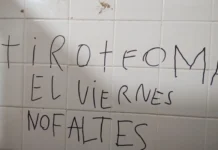 TIROTEO MA
EL VIERNES
NO FALTES